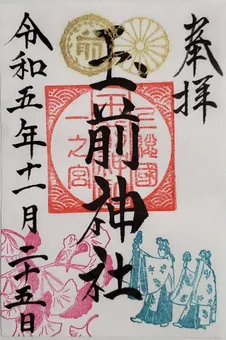 奉拝
上總國
玉前神社
一之宮
前
令和五年十一月二十五日